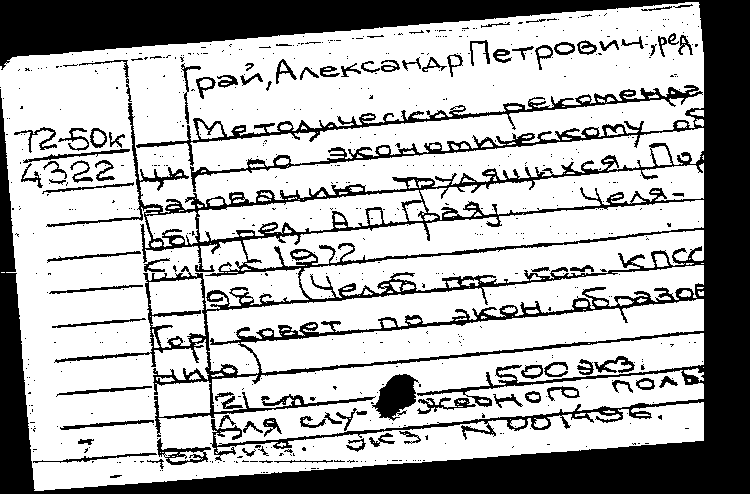 Грай, Александр Петрович, ред.
72-50к
4322
Методические рекоменда
ции по экономическому об
разованию трудящихся. [Под
общ. ред. А.П. Грая]. Челя-
бинск 1972.
98 с. (Челяб. гор. ком. КПСС
Гор. совет по экон. образова
нию)
21 ст. 1500 экз.
Для слу- жебного поль
зования. экз. N 001496.
7